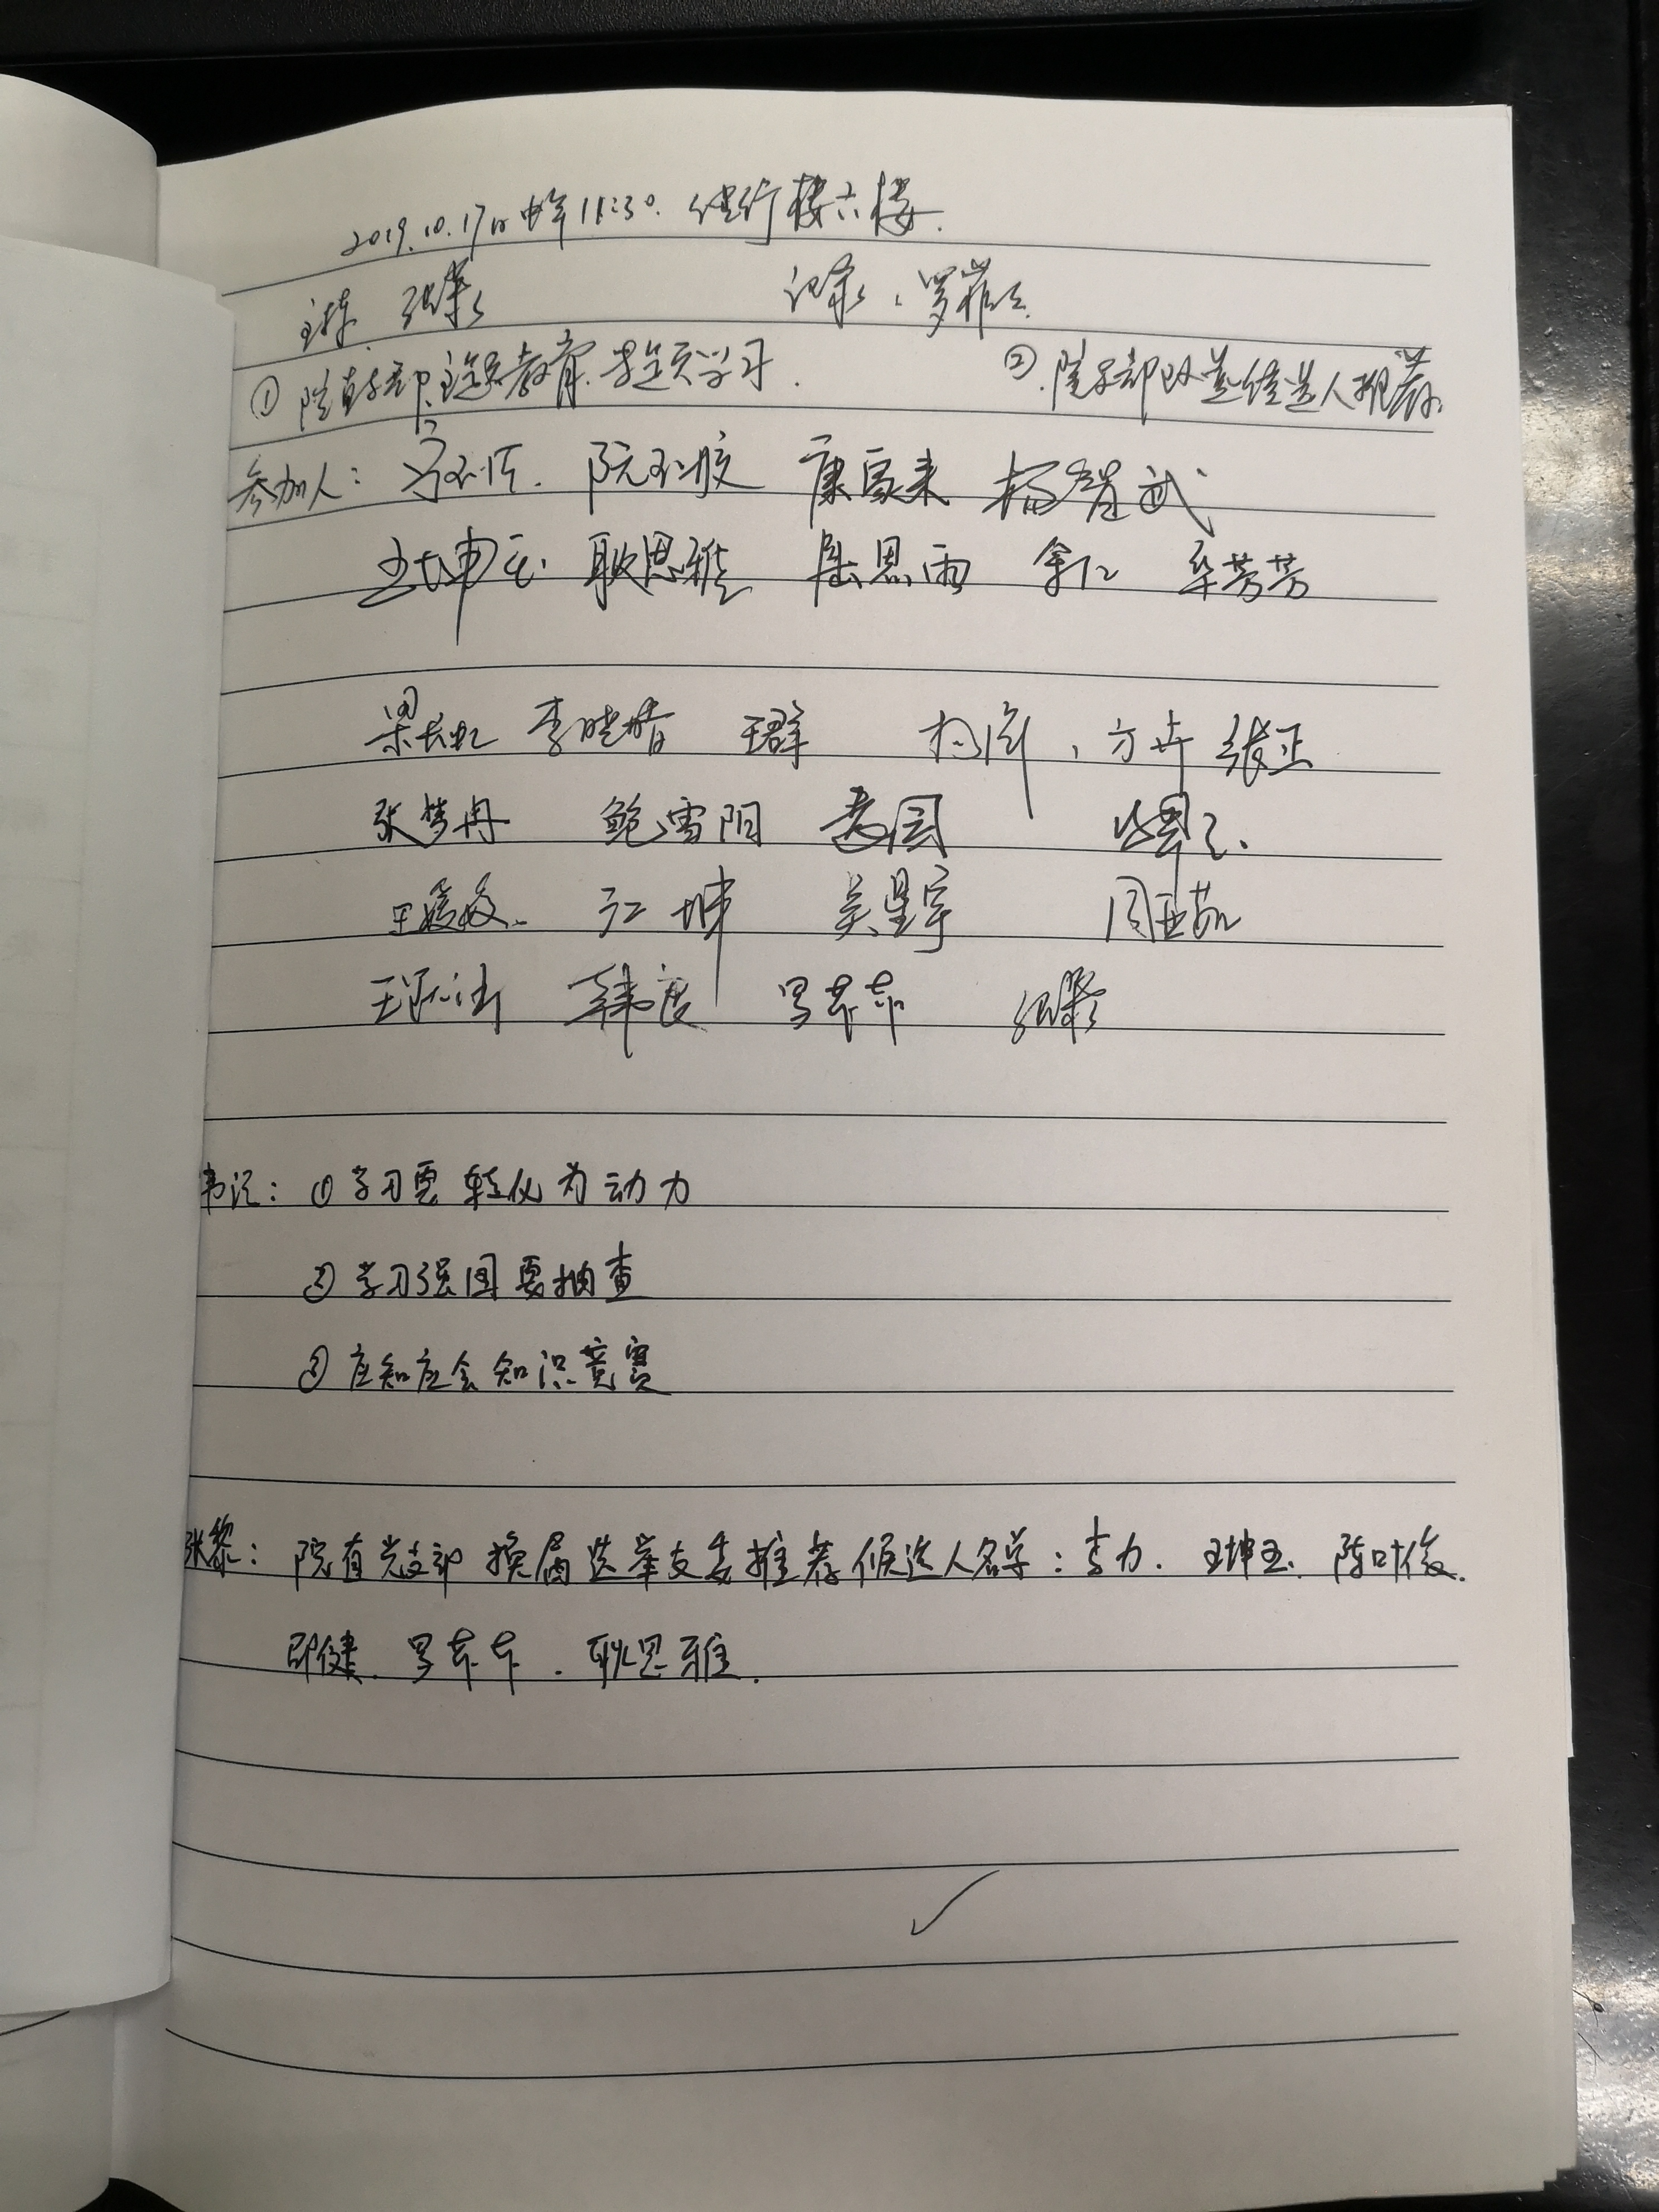 2019.10.17日中午11:30. 健行楼六楼.
主持 张黎 记录:罗菲菲
① 院直支部主题教育.专题学习. ②.院支部改选候选人推荐.
参加人: 阮玉胶 康家来 杨智武
王坤玉. 耿思雅 屈思雨 李仁 毕芳芳
梁长虹 李晓晴 王群 方卉 张正
张梦冉 鲍雪阳
王媛媛 江城 吴星宇 周亚茹
韩度 罗菲菲 张黎
书记: ① 学习要转化为动力
② 学习强国要抽查
③ 应知应会知识竞赛
张黎: 院直党支部换届选举支委推荐候选人名单:李力. 王坤玉. 陈叶俊.
邵健. 罗菲菲. 耿思雅.